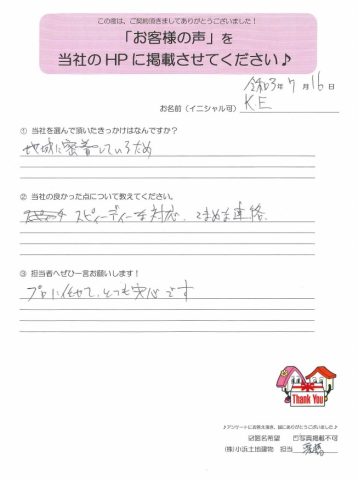 この度は、ご契約頂きましてありがとうございました！
「お客様の声」を
当社のHPに掲載させてください♪
令和3年7月16日
お名前（イニシャル可） KE
① 当社を選んで頂いたきっかけはなんですか？
地域に密着しているため
② 当社の良かった点について教えてください。
スピーディーな対応、こまめな連絡
③ 担当者へぜひ一言お願いします！
プロに任せて、とても安心です
Thank You
♪アンケートにお答え頂き、誠にありがとうございました♪
☑匿名希望 ☑写真掲載不可
(株)小浜土地建物 担当